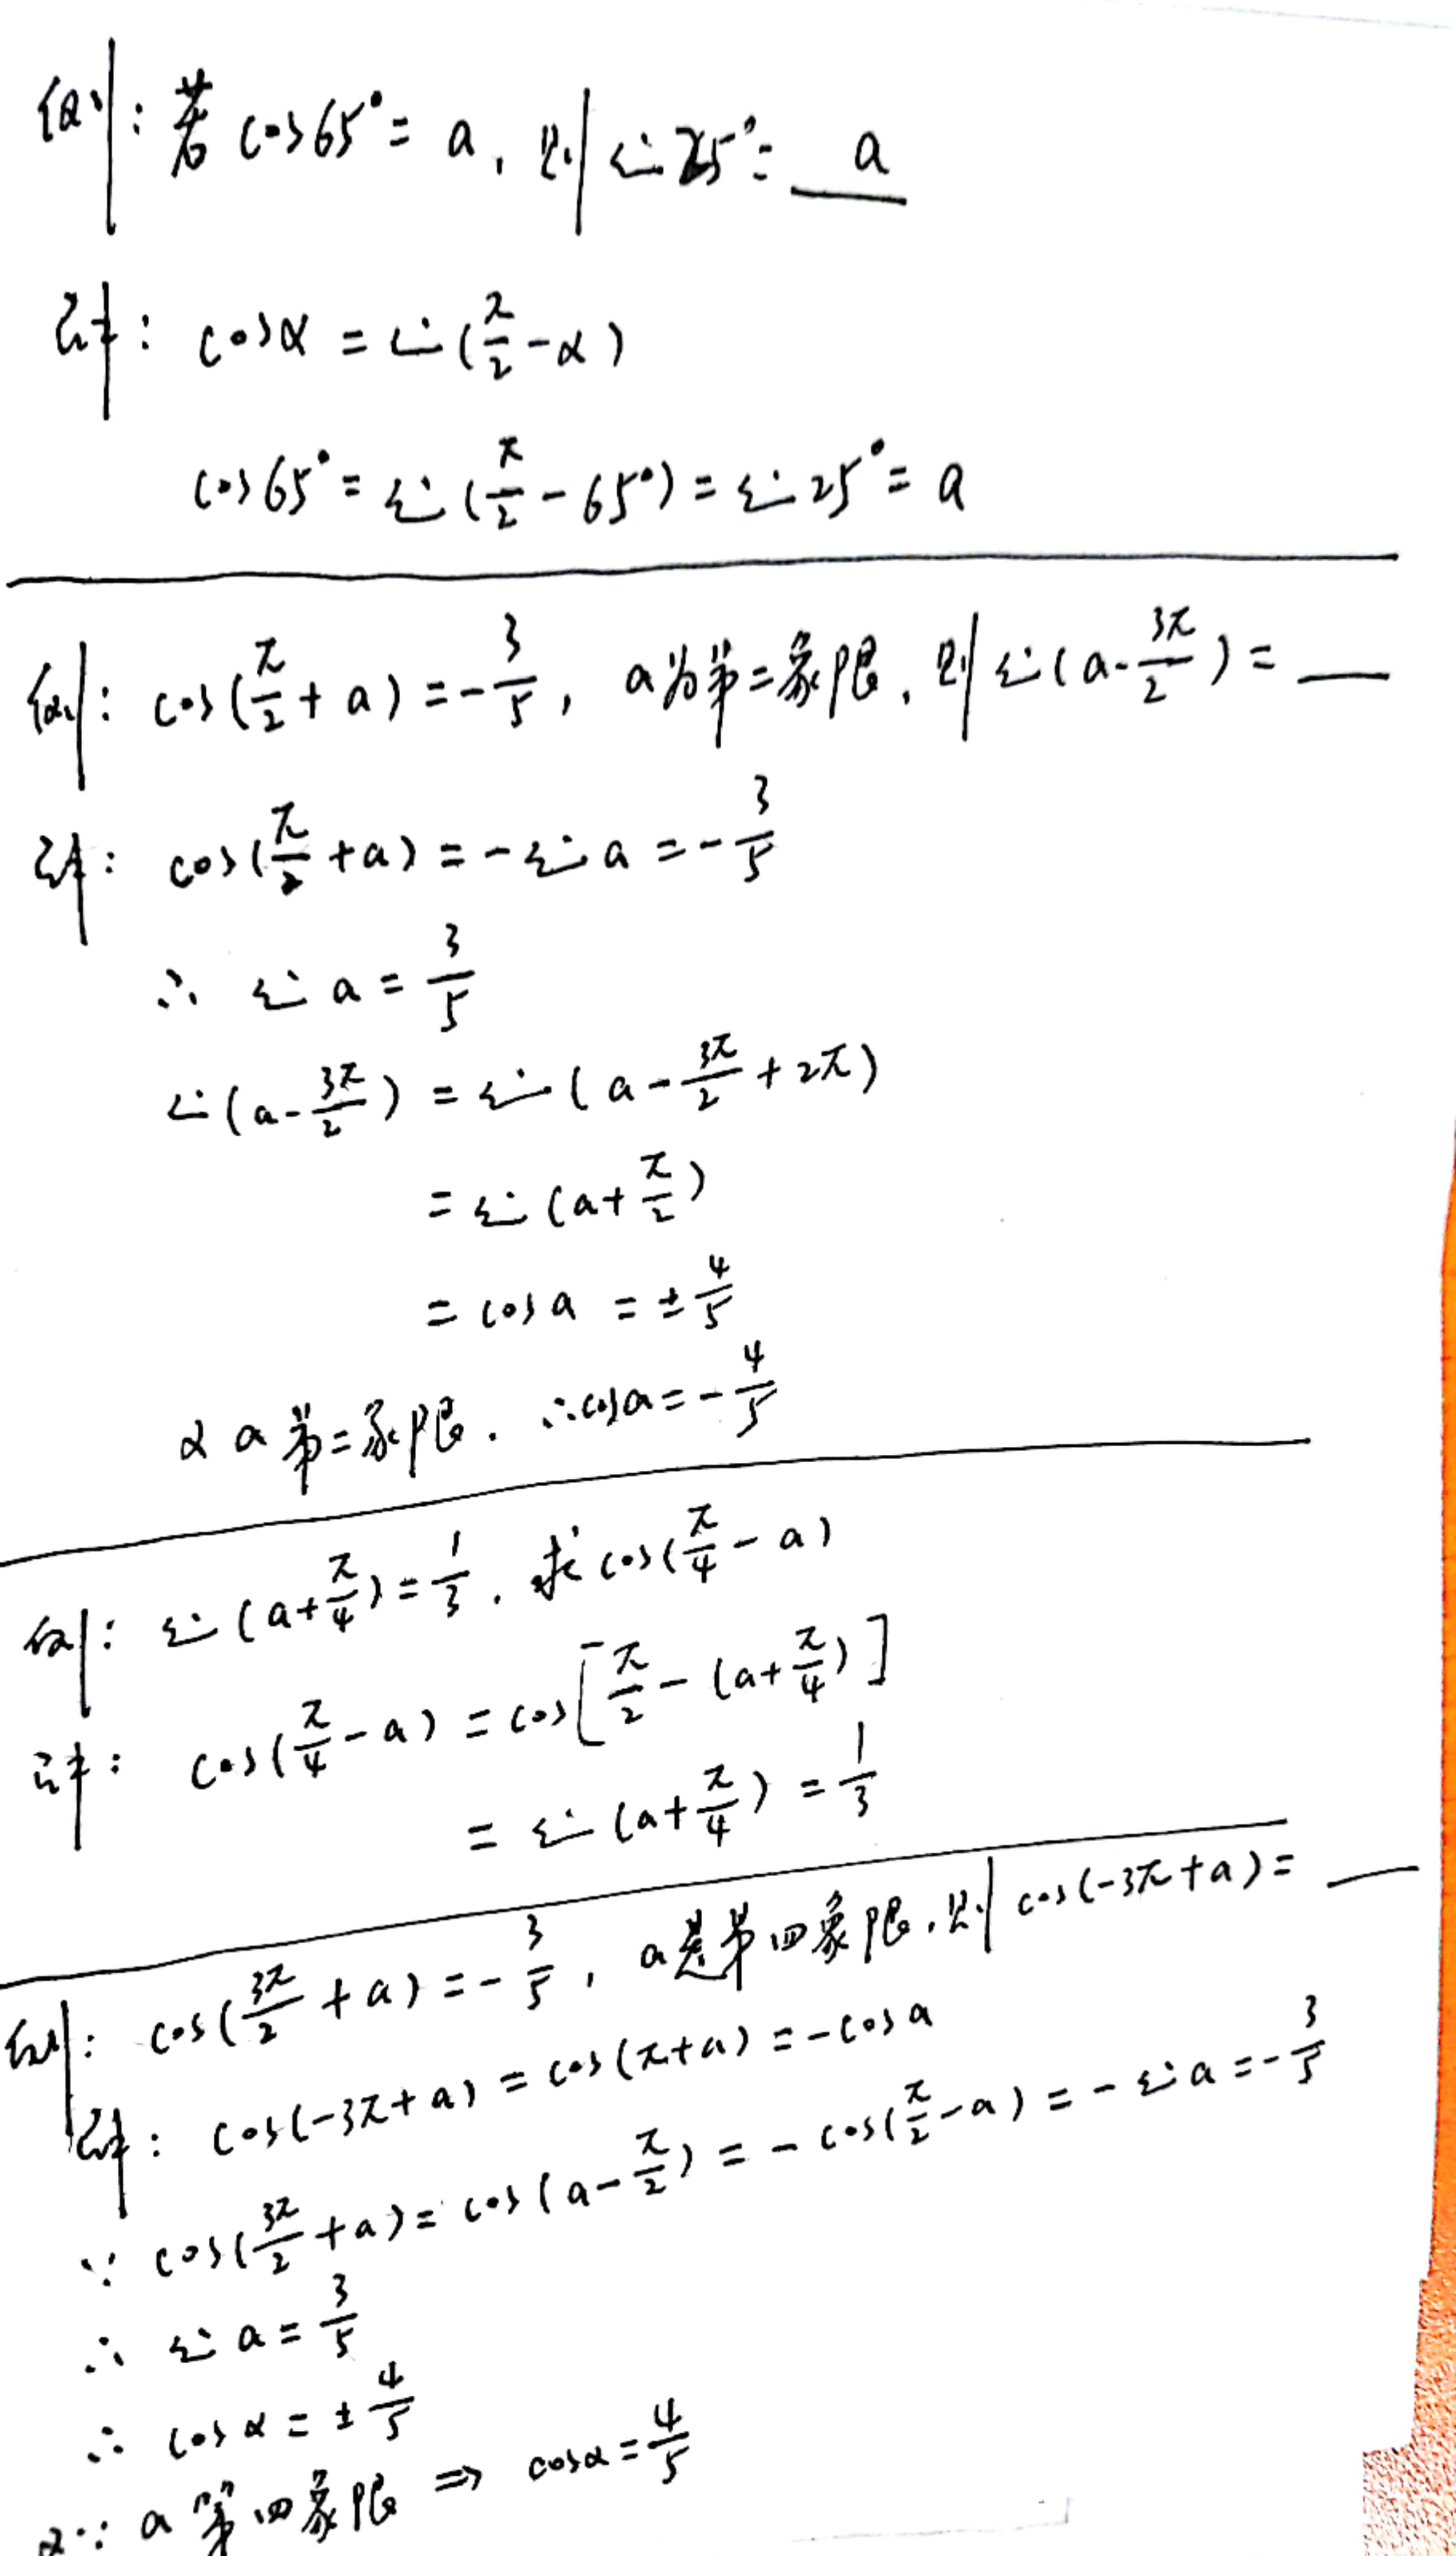 例：若 cos65° = a，则 sin25° = a
解：cosα = sin(π/2 - α)
cos65° = sin(π/2 - 65°) = sin25° = a
例：cos(π/2 + a) = -3/5，a为第二象限，则 sin(a - 3π/2) = __
解：cos(π/2 + a) = -sin a = -3/5
∴ sin a = 3/5
sin(a - 3π/2) = sin(a - 3π/2 + 2π)
= sin(a + π/2)
= cos a = ±4/5
又 a 第二象限．∴cos a = -4/5
例：sin(a + π/4) = 1/3．求 cos(π/4 - a)
解：cos(π/4 - a) = cos[π/2 - (a + π/4)]
= sin(a + π/4) = 1/3
例：cos(3π/2 + a) = -3/5，a是第四象限，则 cos(-3π + a) = __
解：cos(-3π + a) = cos(π + a) = -cos a
∵ cos(3π/2 + a) = cos(a - π/2) = -cos(π/2 - a) = -sin a = -3/5
∴ sin a = 3/5
∴ cos α = ±4/5
又∵ a 第四象限 ⇒ cos α = 4/5